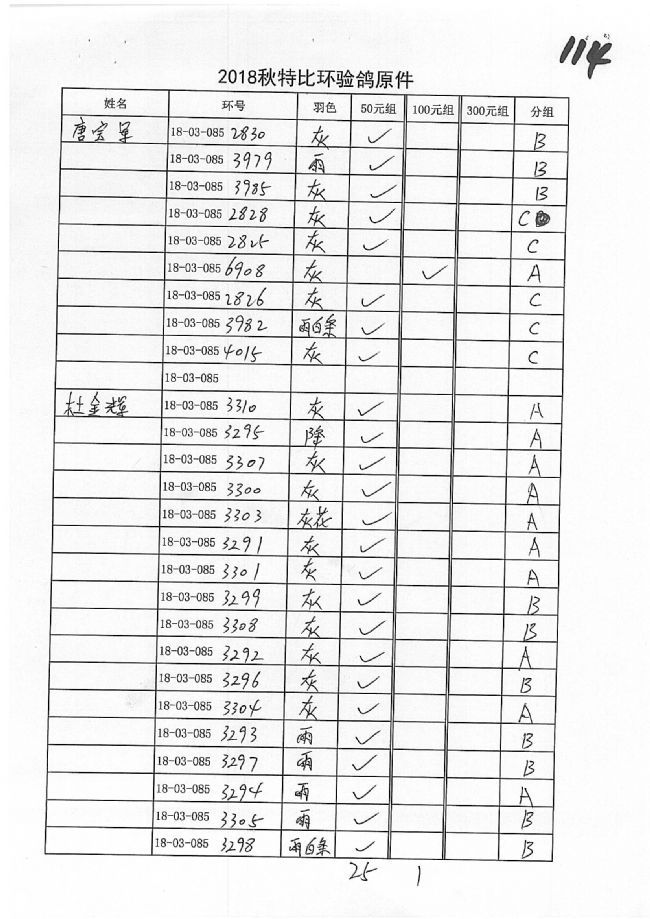 114
2018秋特比环验鸽原件
姓名 环号 羽色 50元组 100元组 300元组 分组
唐宝军 18-03-085 2830 灰 ✓ B
18-03-085 3979 雨 ✓ B
18-03-085 3985 灰 ✓ B
18-03-085 2828 灰 ✓ C
18-03-085 2825 灰 ✓ C
18-03-085 6908 灰 ✓ A
18-03-085 2826 灰 ✓ C
18-03-085 3982 雨白条 ✓ C
18-03-085 4015 灰 ✓ C
18-03-085
杜金辉 18-03-085 3310 灰 ✓ A
18-03-085 3295 降 ✓ A
18-03-085 3307 灰 ✓ A
18-03-085 3300 灰 ✓ A
18-03-085 3303 灰花 ✓ A
18-03-085 3291 灰 ✓ A
18-03-085 3301 灰 ✓ A
18-03-085 3299 灰 ✓ B
18-03-085 3308 灰 ✓ B
18-03-085 3292 灰 ✓ A
18-03-085 3296 灰 ✓ B
18-03-085 3304 灰 ✓ A
18-03-085 3293 雨 ✓ B
18-03-085 3297 雨 ✓ B
18-03-085 3294 雨 ✓ A
18-03-085 3305 雨 ✓ B
18-03-085 3298 雨白条 ✓ B
25 1